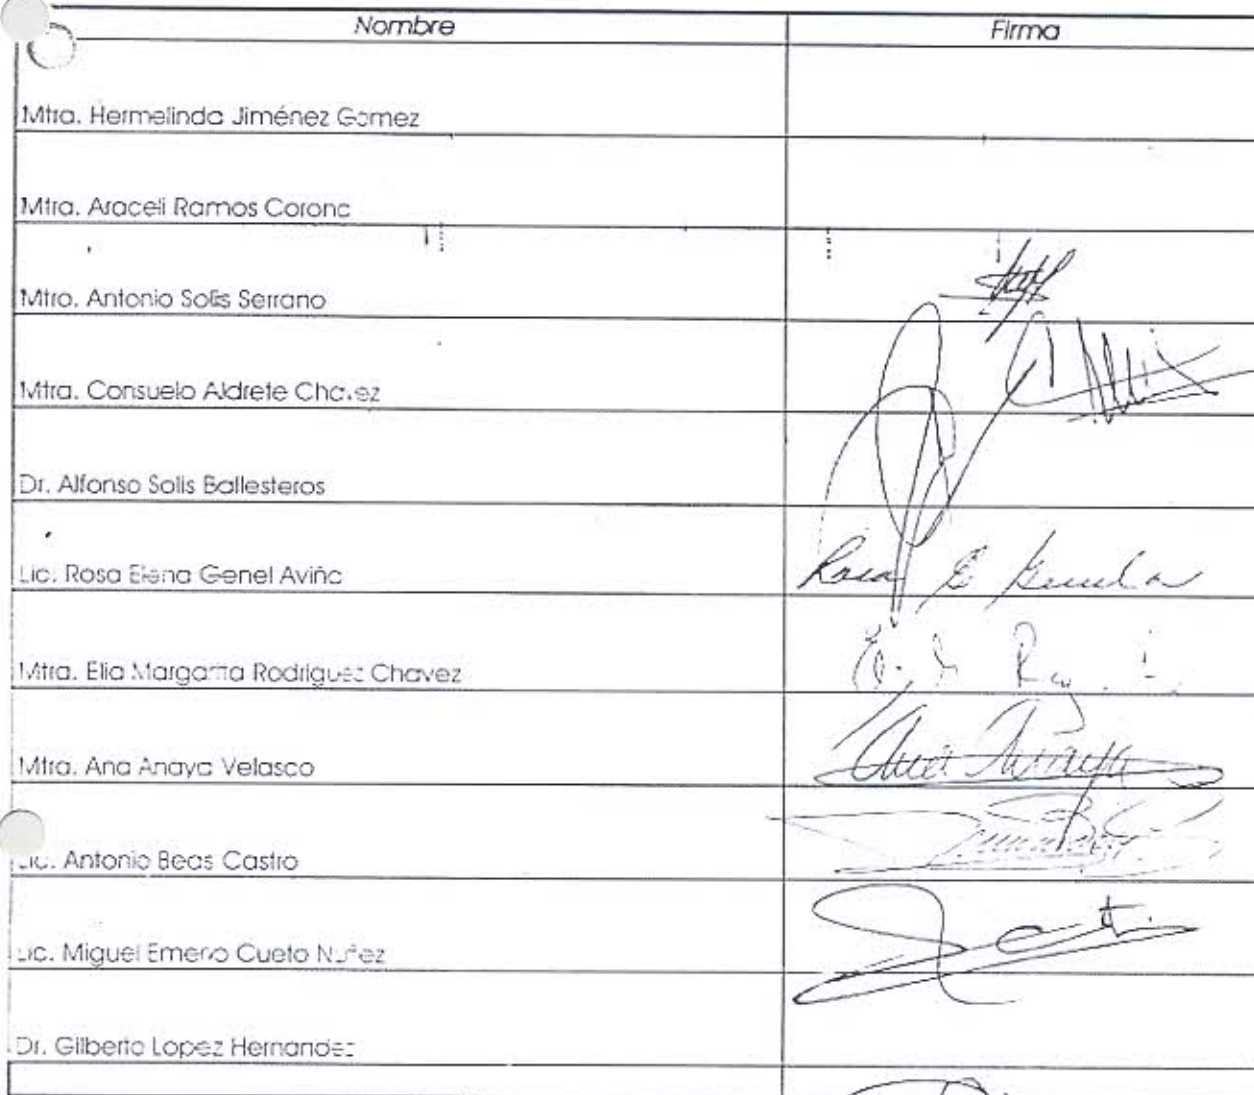 Nombre Firma
Mtra. Hermelinda Jiménez Gomez
Mtra. Araceli Ramos Corona
Mtro. Antonio Solis Serrano
Mtra. Consuelo Aldrete Chavez
Dr. Alfonso Solis Ballesteros
Lic. Rosa Elena Genel Aviña Rosa E
Mtra. Elia Margarita Rodriguez Chavez
Mtra. Ana Anaya Velasco Ana Anaya
Lic. Antonio Beas Castro
Lic. Miguel Cueto Nuñez
Dr. Gilberto Lopez Hernandez